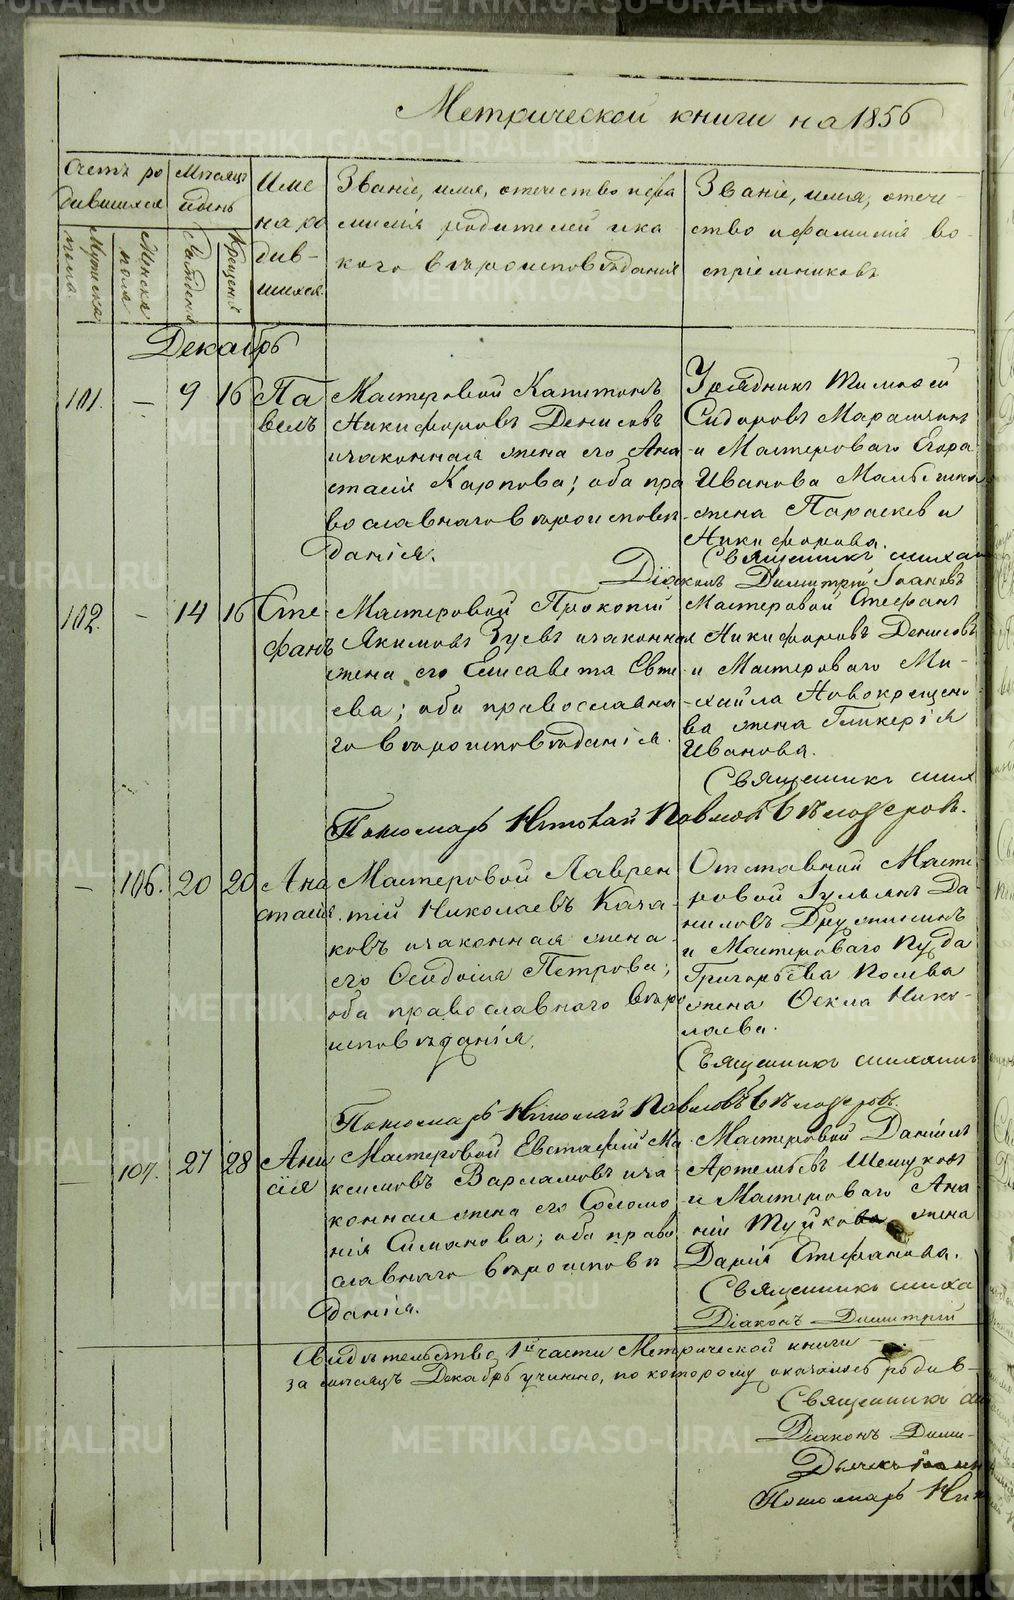 Метрической книги на 1856
Счетъ ро
дившихся
Мѣсяцъ
и день
Име
на ро
див-
шихся.
Званіе, имя, отечество и фа
милія родителей и ка
кого вѣроисповѣданія
Званіе, имя, отече-
ство и фамилія во-
спріемниковъ
Мужеска
пола
Женска
пола
Рожденія
Крещенія
Декабрь
101. — 9 16
Па
велъ
Мастеровой Капитонъ
Никифоровъ Денисовъ
и законная жена его Ана
стасія Карпова; оба пра
вославнаго вѣроисповѣ-
данія.
Урядникъ Тимофей
Сидоровъ
и Мастероваго Егора
Иванова
жена Параскева
Никифорова.
Священникъ Миха
Діаконъ Димитрій Іоановъ
102. — 14 16
Сте
фанъ
Мастеровой Прокопій
Якимовъ Зуевъ и законная
жена его Елисавета Евти
ева; оба православна
го вѣроисповѣданія.
Мастеровой Стефанъ
Никифоровъ Денисовъ
и Мастероваго Ми-
хаила Новокрещено
ва жена Гликерія
Иванова.
Священникъ Мих
Пономарь Николай Павловъ Бѣлозеровъ.
— 106. 20 20
Ана
стасія
Мастеровой Лаврен
тій Николаевъ Каза-
ковъ и законная жена
его Ѳеодосія Петрова;
оба православнаго вѣро
исповѣданія.
Отставной Масте-
ровой Іульянъ Да
ниловъ Дружининъ
и Мастероваго Пуда
Григорьева
жена Ѳекла Нико-
лаева.
Священникъ Михаилъ
Пономарь Николай Павловъ Бѣлозеровъ.
— 107. 27 28
Ани
сія
Мастеровой Евстафій Ма
ксимовъ Варламовъ и за
конная жена его Соломо
нія Симанова; оба право
славнаго вѣроисповѣ
данія.
Мастеровой Даніилъ
Артемьевъ Шешуковъ
и Мастероваго Ана
ній Туйкова жена
Дарія Стефанова.
Священникъ Миха
Діаконъ Димитрій
Свидѣтельство 1й части Метрической книги
за мѣсяцъ Декабрь учинено, по которому оказалось родив-
Священникъ
Діаконъ Дими-
Дьячекъ
Пономарь Ник
METRIKI.GASO-URAL.RU